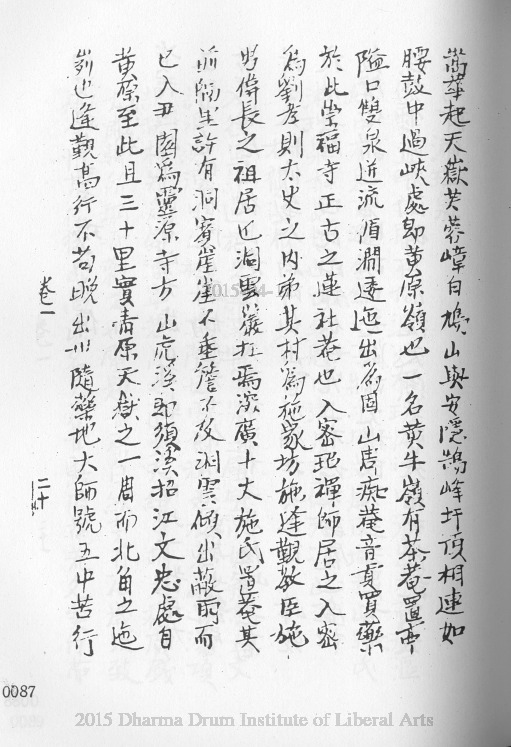 嵩華起天嶽芙蓉嶂白鳩山與安隱鵠峰圩頂相連如
腰鼓中過峽處即黃原嶺也一名黃牛嶺有茶菴置亭
隘口雙泉迸流循澗逶迤出為固山嵩癡菴音賣買藥
於此崇福寺正古之蓮社菴也入密玭禪師居之入密
為劉孝則太史之內弟其村為施家坊施逢觀教臣施
男偉長之祖居也洞雲巖在焉深廣十丈施氏置菴其
前隔生許有洞窅崖崖不垂簷不及洞雲傾出蔽雨而
已入丑園為靈源寺方山流深即須溪招江文忠處自
黃原至此且三十里實青原天嶽之一周而北角之迤
峛也逢覲高行不苟晚出世隨藥地大師號五中苦行
卷一
二十
2015
0087
2015 Dharma Drum Institute of Liberal Arts